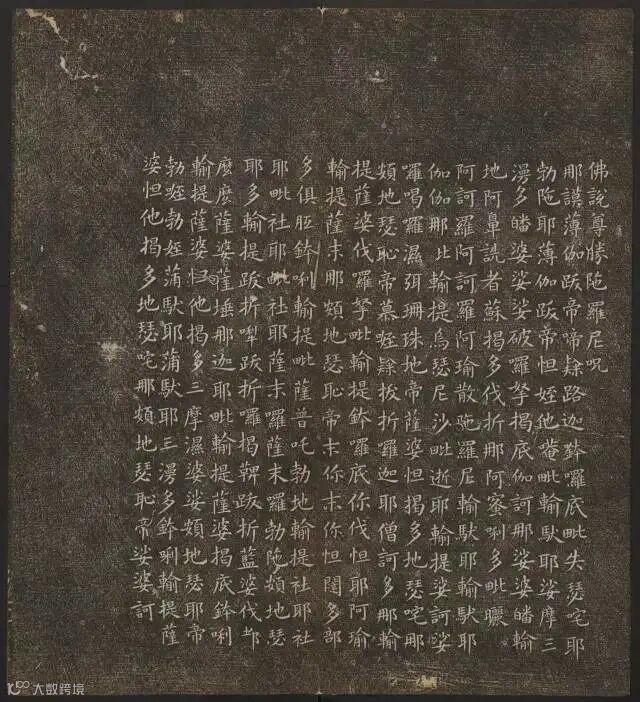 佛說尊勝陁羅尼咒
那謨薄伽跋帝啼隸路迦鉢囉底毗失瑟咤耶
勃陁耶薄伽跋帝怛姪他菴毗輸馱耶娑摩三
漫多皤婆娑娑破羅拏揭底伽訶那娑婆皤輸
地阿鼻詵者蘇揭多伐折那阿蜜唎多毗曬
阿訶羅阿訶羅阿瑜散陁羅尼輸馱耶輸馱耶
伽伽那比輸提烏瑟尼沙毗逝耶輸提娑訶娑
囉喝囉濕弭珊珠地帝薩婆怛揭多地瑟咤那
頞地瑟恥帝慕姪隸拔折囉迦耶僧訶多那輸
提薩婆伐羅拏毗輸提鉢羅底你伐怛耶阿瑜
輸提薩末那頞地瑟恥帝末你末你怛闥多部
多俱胝鉢唎輸提毗薩普吒勃地輸提社耶社
耶毗社耶毗社耶薩末羅薩末羅勃陁頞地瑟
耶多輸提跋折犁跋折囉揭鞞跋折藍婆伐都
麽麽薩婆薩埵那迦耶毗輸提薩婆揭底鉢唎
輸提薩婆怛他揭多三摩濕婆娑頞地瑟耶帝
勃姪勃姪蒲馱耶蒲馱耶三漫多鉢唎輸提薩
婆怛他揭多地瑟咤那頞地瑟恥帝娑婆訶
大数跨境